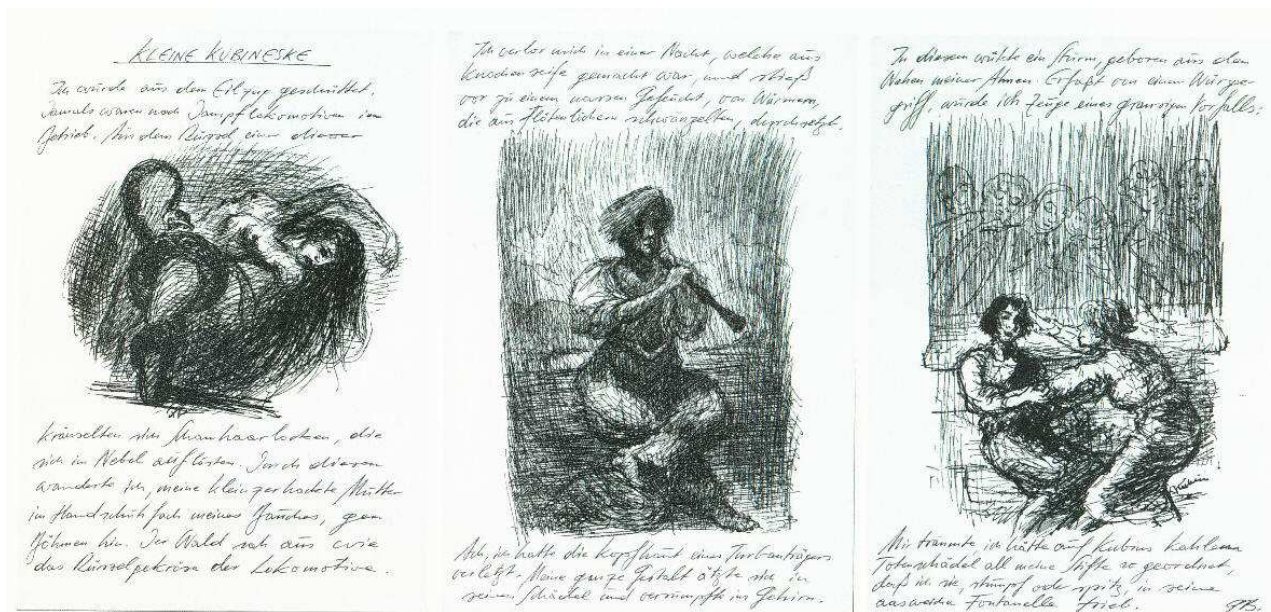 KLEINE KUBINESKE
Ich wurde aus dem Eilzug geschüttet.
Damals waren noch Dampflokomotiven im
Betrieb. Aus dem Rüssel einer dieser
kräuselten sich Schamhaarlocken, die
sich im Nebel auflösten. Durch diesen
wanderte ich, meine kleingehackte Mutter
im Handschuhfach meines Bauches, gen
Böhmen hin. Der Wald sah aus wie
das Rüsselgekröse der Lokomotive.
Ich verlor mich in einer Nacht, welche aus
Knochenseife gemacht war, und stieß
vor zu einem nassen Gesicht, von Würmern,
die aus Flötenlöchern schwänzelten, durchsetzt.
Ach, ich hatte die Kopfhaut eines Turbanträgers
verletzt. Meine ganze Gestalt ätzte sich in
seinen Schädel und versumpfte im Gehirn.
In diesem wühlte ein Sturm, geboren aus den
Wehen meiner Ahnen. Erfaßt von einem Würge-
griff, wurde ich Zeuge eines grausigen Vorfalls:
Kubin
Mir träumte, ich hätte auf Kubins kahlem
Totenschädel all meine Stifte so geordnet,
daß ich sie, stumpf oder spitz, in seine
aasweiche Fontanelle trieb.